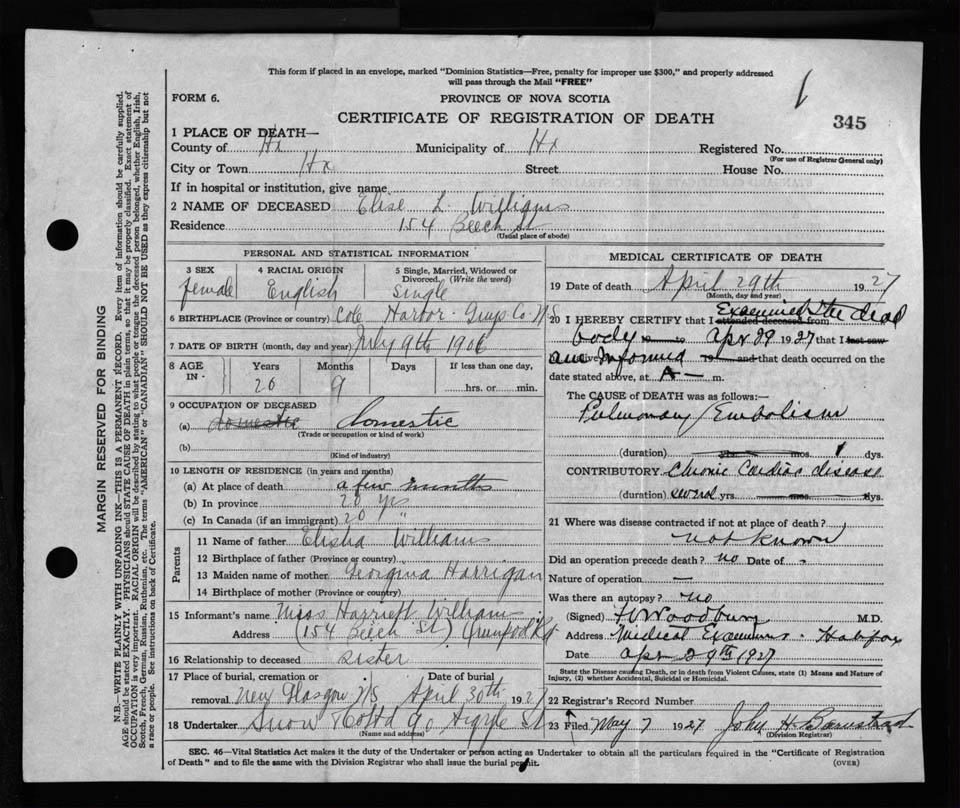 This form if placed in an envelope, marked "Dominion Statistics—Free, penalty for improper use $300," and properly addressed
will pass through the Mail "FREE"
FORM 6.
PROVINCE OF NOVA SCOTIA
CERTIFICATE OF REGISTRATION OF DEATH
345
1 PLACE OF DEATH—
County of Hx Municipality of Hx Registered No.
(For use of Registrar General only)
City or Town Hx Street House No.
If in hospital or institution, give name
2 NAME OF DECEASED Elise L. Williams
Residence 154 Beech St
(Usual place of abode)
PERSONAL AND STATISTICAL INFORMATION
3 SEX 4 RACIAL ORIGIN 5 Single, Married, Widowed or Divorced. (Write the word)
female English Single
6 BIRTHPLACE (Province or country) Cole Harbor Guys. Co. N.S
7 DATE OF BIRTH (month, day and year) July 9th 1906
8 AGE IN Years Months Days If less than one day,
20 9 hrs. or min.
9 OCCUPATION OF DECEASED
(a) domestic Domestic
(Trade or occupation or kind of work)
(b)
(Kind of industry)
10 LENGTH OF RESIDENCE (in years and months)
(a) At place of death a few months
(b) In province 20 yrs
(c) In Canada (if an immigrant) 20 "
Parents
11 Name of father Elisha Williams
12 Birthplace of father (Province or country)
13 Maiden name of mother Georgina Harrigan
14 Birthplace of mother (Province or country)
15 Informant's name Miss Harriett Williams
Address (154 Beech St)
16 Relationship to deceased sister
17 Place of burial, cremation or removal Date of burial
New Glasgow NS April 30th 1927
18 Undertaker Snow & Co Ltd 90 Argyle St
(Name and address)
MEDICAL CERTIFICATE OF DEATH
19 Date of death April 29th 1927
(Month, day and year)
20 I HEREBY CERTIFY that I attended deceased from Examined the dead
body to Apr 29 1927 that I last saw
alive am informed 19 and that death occurred on the
date stated above, at A— m.
The CAUSE of DEATH was as follows:—
Pulmonary Embolism
(duration) yrs. mos. 1 dys.
CONTRIBUTORY. Chronic Cardiac disease
(duration) several yrs. mos. dys.
21 Where was disease contracted if not at place of death?
not known
Did an operation precede death? no Date of -
Nature of operation —
Was there an autopsy? no
(Signed) H Woodbury M.D.
Address Medical Examiner. Halifax
Date Apr 29th 1927
State the Disease causing Death, or in death from Violent Causes, state (1) Means and Nature of
Injury, (2) whether Accidental, Suicidal or Homicidal.
22 Registrar's Record Number
23 Filed May 7 1927 John H Barnstead
(Division Registrar)
SEC. 46—Vital Statistics Act makes it the duty of the Undertaker or person acting as Undertaker to obtain all the particulars required in the "Certificate of Registration
of Death" and to file the same with the Division Registrar who shall issue the burial permit.
(OVER)
MARGIN RESERVED FOR BINDING
N.B.—WRITE PLAINLY WITH UNFADING INK—THIS IS A PERMANENT RECORD. Every item of information should be carefully supplied.
AGE should be stated EXACTLY. PHYSICIANS should STATE CAUSE OF DEATH in plain terms, so that it may be properly classified. Exact statement of
OCCUPATION is very important. RACIAL ORIGIN will be described by stating to what people or tongue the deceased person belonged, whether English, Irish,
Scotch, French, German, Russian, Ruthenian, etc. The terms "AMERICAN" or "CANADIAN" SHOULD NOT BE USED as they express citizenship but not
a race or people. See instructions on back of Certificate.